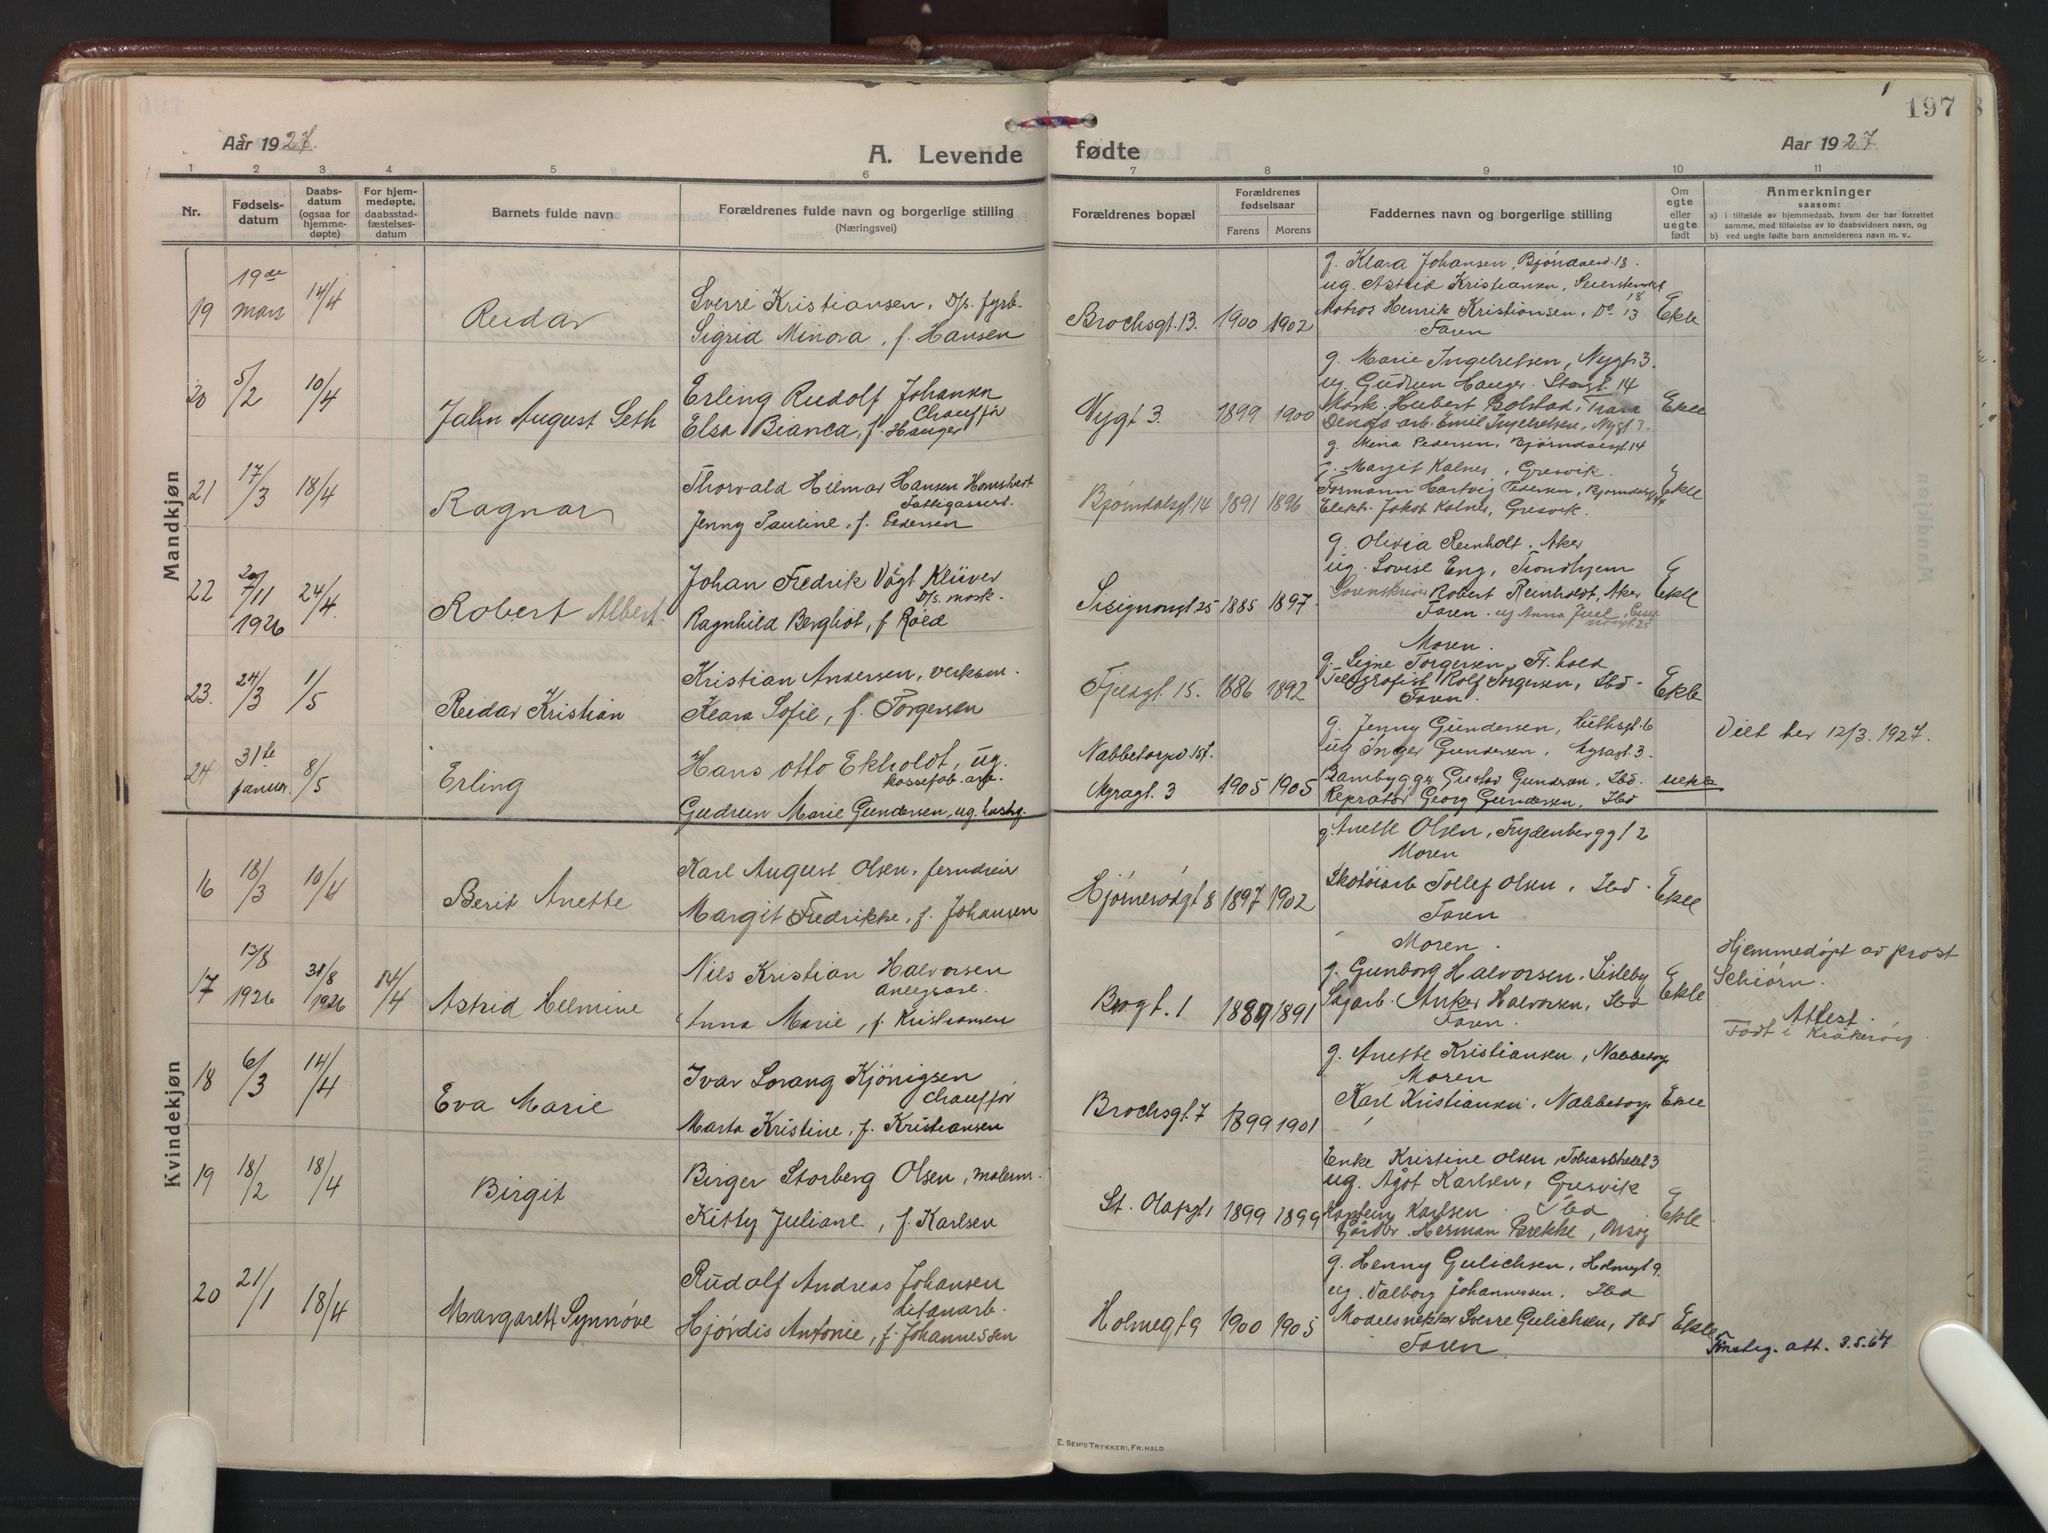 197
Aar 1927.
A. Levende fødte
Aar 1927
1 2 3 4 5 6 7 8 9 10 11
Nr.
Fødselsdatum
Daabsdatum (ogsaa for hjemmedøpte)
For hjemmedøpte, daabsstadfæstelsesdatum
Barnets fulde navn
Forældrenes fulde navn og borgerlige stilling
(Næringsvei)
Forældrenes bopæl
Forældrenes fødselsaar
Farens Morens
Faddernes navn og borgerlige stilling
Om egte eller uegte født
Anmerkninger
saasom:
a) i tilfælde av hjemmedaab, hvem der har forrettet samme, med tilføielse av to daabsvidners navn, og
b) ved uegte fødte barn anmelderens navn m. v..
Mandkjøn
19 19de mars 14/4 Reidar
Sverre Kristiansen, D/s. fyrb.
Sigrid Minora, f. Hansen
Brochsgt. 13. 1900 1902
g. Klara Johansen, Bjørndalsv. 18.
ug. Astrid Kristiansen,
Matros Henrik Kristiansen, Do 13
Faren
Ekte
20 5/2 10/4 Jahn August Seth
Erling Rudolf Johansen
Chauffør
Elsa Bianca, f. Hauger
Nygt 3. 1899 1900
g. Marie Ingelretsen, Nygt 3.
ug. Gudrun Hauger. Storgt. 14
Mask. Hubert Bolstad, Trara
arb. Emil Ingelretsen, Nygt 3.
Ekte
21 17/3 18/4 Ragnar
Thorvald Hilmar Hansen
Jenny Pauline, f. Pedersen
Bjørndalsgt. 14 1891 1896
g. Mina Pedersen, Bjørndalsgt. 14
g. Margit Kalnes, Gresvik.
Formann Hartvig Pedersen, Bjørndalsgt 14
Elektr. Jakob Kalnes, Gresvik.
Ekte
22 20/11 1926 24/4. Robert Albert.
Johan Fredrik Vogt Klüver
D/s. mask.
Ragnhild Bergliot, f. Röed
Sisignongt 25 1885 1897
g. Olivia Reinholt. Aker
ug. Lovise Eng, Trondhjem
Sorenskriver Robert Reinholdt, Aker
Faren. ug Anna Juel,
Ekte
23. 24/3 1/5 Reidar Kristian
Kristian Andersen, verksm.
Klara Sofie, f. Torgersen
Fjeldgt. 15. 1886 1892
Moren.
g. Signe Torgersen, Fr. hald
Telegrafist Rolf Torgersen, Ibd.
Faren.
Ekte
24 31te januar. 8/5 Erling
Hans Otto Ekholdt, ug.
kassefab. arb.
Gudrun Marie Gundersen, ug. hushj.
Nabbetorpv 151.
Nyragt. 3 1905 1905
g. Jenny Gundersen, Huthsgt. 6
ug Inger Gundersen. Nyragt 3.
Gustav Gundersen, Ibd.
Repratør Georg Gundersen, Ibd
uekte
Viet her 12/3. 1927.
Kvindekjøn
16 18/3 10/4 Berit Anette
Karl August Olsen, jerndreier
Margit Fredrikke, f. Johansen
Hjørnerødgt 8 1897 1902
g. Anette Olsen, Frydenberggt 2
Moren
Skotøiarb Tollef Olsen, Ibd.
Faren
Ekte
17 13/8 1926 31/8 1926 14/4 Astrid Helmine
Nils Kristian Halvorsen
Anlegsarb.
Anna Marie, f. Kristiansen
Brogt. 1 1889 1891
Moren.
g. Gunborg Halvorsen. Lisleby
Sagarb. Anker Halvorsen, Ibd
Faren.
Ekte
Hjemmedøpt av prost
Schiørn.
Attest.
Født i Kråkerøy.
18 6/3 14/4 Eva Marie
Ivar Lorang Kjönigsen
Chauffør
Marta Kristine, f. Kristiansen
Brochsgt. 7 1899 1901
g. Anette Kristiansen, Nabbetorp
Moren
Karl Kristiansen, Nabbetorp
Ekte
19 18/2 18/4 Birgit
Birger Storberg Olsen, malerm.
Kitty Juliane, f. Karlsen
St. Olafsgt 1 1899 1899
Enke Kristine Olsen,
ug. Ågot Karlsen, Gresvik
Kaptein Karlsen. Ibd
Herman Brekke, Onsøy
Ekte
20 21/1 18/4 Margarett Synnøve
Rudolf Andreas Johansen
titanarb.
Hjördis Antonie, f. Johannessen
Holmegt 9 1900 1905
g. Henny Gulichsen, Holmegt 9.
ug. Valborg Johannessen. Ibd
Modelsnekker Sverre Gulichsen, Ibd
Faren.
Ekte
att. 3.5.67
E. SEM'S TRYKKERI, FR.HALD